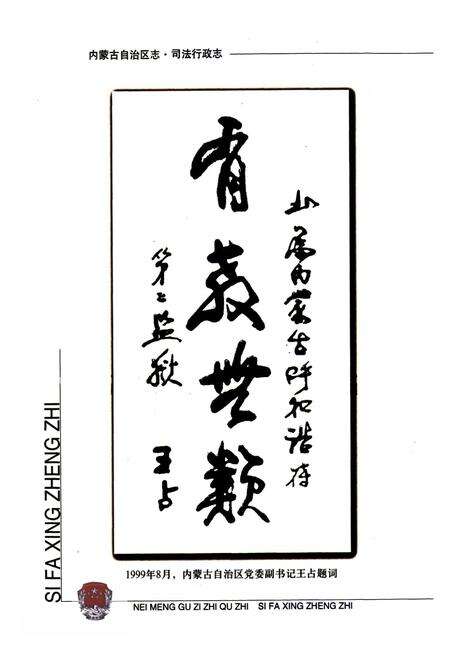 内蒙古自治区志·司法行政志
有教无类
内蒙古呼和浩特
第二监狱
王占
1999年8月，内蒙古自治区党委副书记王占题词
SI FA XING ZHENG ZHI
NEI MENG GU ZI ZHI QU ZHI SI FA XING ZHENG ZHI